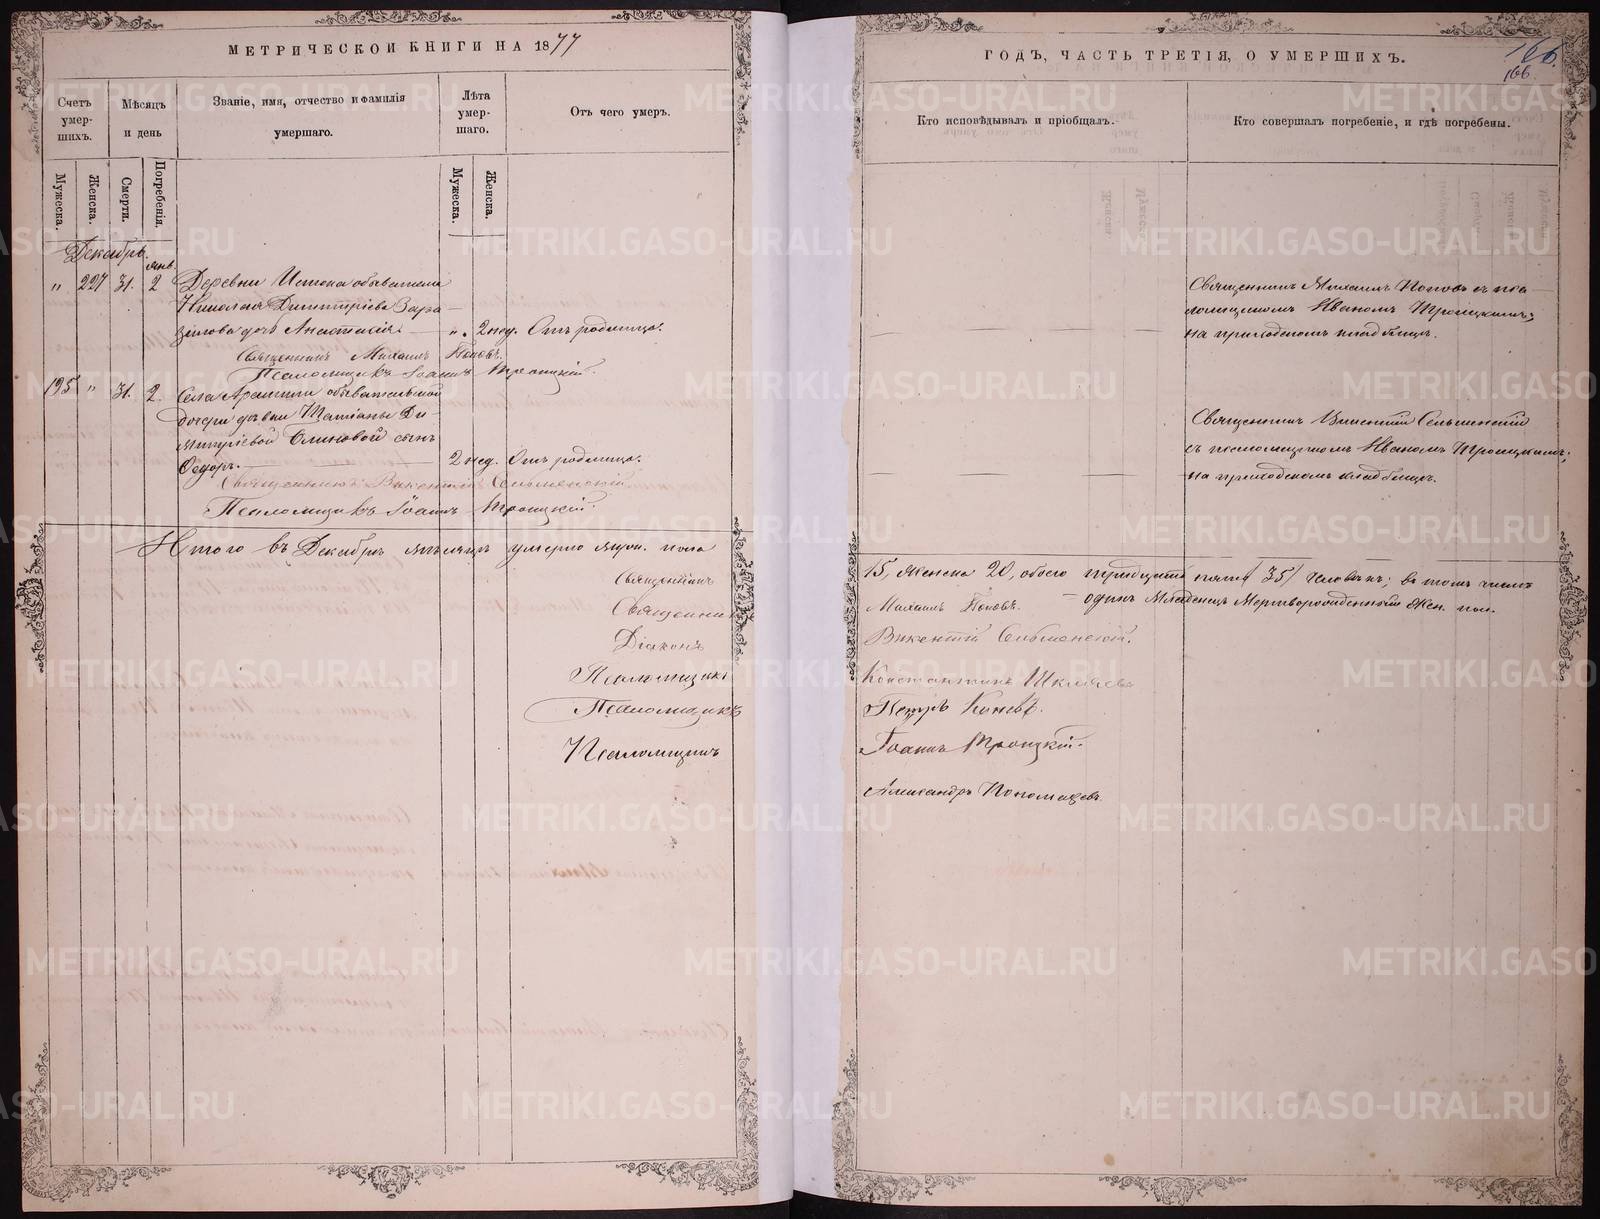 МЕТРИЧЕСКОЙ КНИГИ НА 1877
Счетъ умер-шихъ.
Мѣсяцъ и день
Званіе, имя, отчество и фамилія умершаго.
Лѣта умер-шаго.
Отъ чего умеръ.
Мужеска.
Женска.
Смерти.
Погребенія.
Мужеска.
Женска.
Декабрь.
Янв.
" 227 31. 2 Деревни Истока обывателя
Николая Димитріева
дочь Анастасія. ". 2 нед. Отъ родимца.
Священникъ Михаилъ Поповъ.
Псаломщикъ Іоаннъ Троицкій.
195 " 31. 2. Села Арамили обывательской
дочери дѣвки Татіаны Ди-
митріевой сынъ
Ѳедоръ. 2 нед. Отъ родимца.
Священникъ Викентій Сельменскій
Псаломщикъ Іоаннъ Троицкій.
Итого въ Декабрѣ мѣсяцѣ умерло муж. пола
Священникъ
Священникъ
Діаконъ
Псаломщикъ
Псаломщикъ
Псаломщикъ
ГОДЪ, ЧАСТЬ ТРЕТІЯ, О УМЕРШИХЪ.
166.
166.
Кто исповѣдывалъ и пріобщалъ.
Кто совершалъ погребеніе, и гдѣ погребены.
Священникъ Михаилъ Поповъ съ пса-
ломщикомъ Иваномъ Троицкимъ;
на приходскомъ кладбищѣ.
Священникъ Викентій Сельменскій
съ псаломщикомъ Иваномъ Троицкимъ;
на приходскомъ кладбищѣ.
15, женска 20, обоего тридцать пять /35/ человѣкъ; въ томъ числѣ
– одинъ младенецъ мертворожденный жен. пол.
Михаилъ Поповъ.
Викентій Сельменскій.
Константинъ
Петръ Коневъ.
Іоаннъ Троицкій.
Александръ Пономаревъ.
METRIKI.GASO-URAL.RU